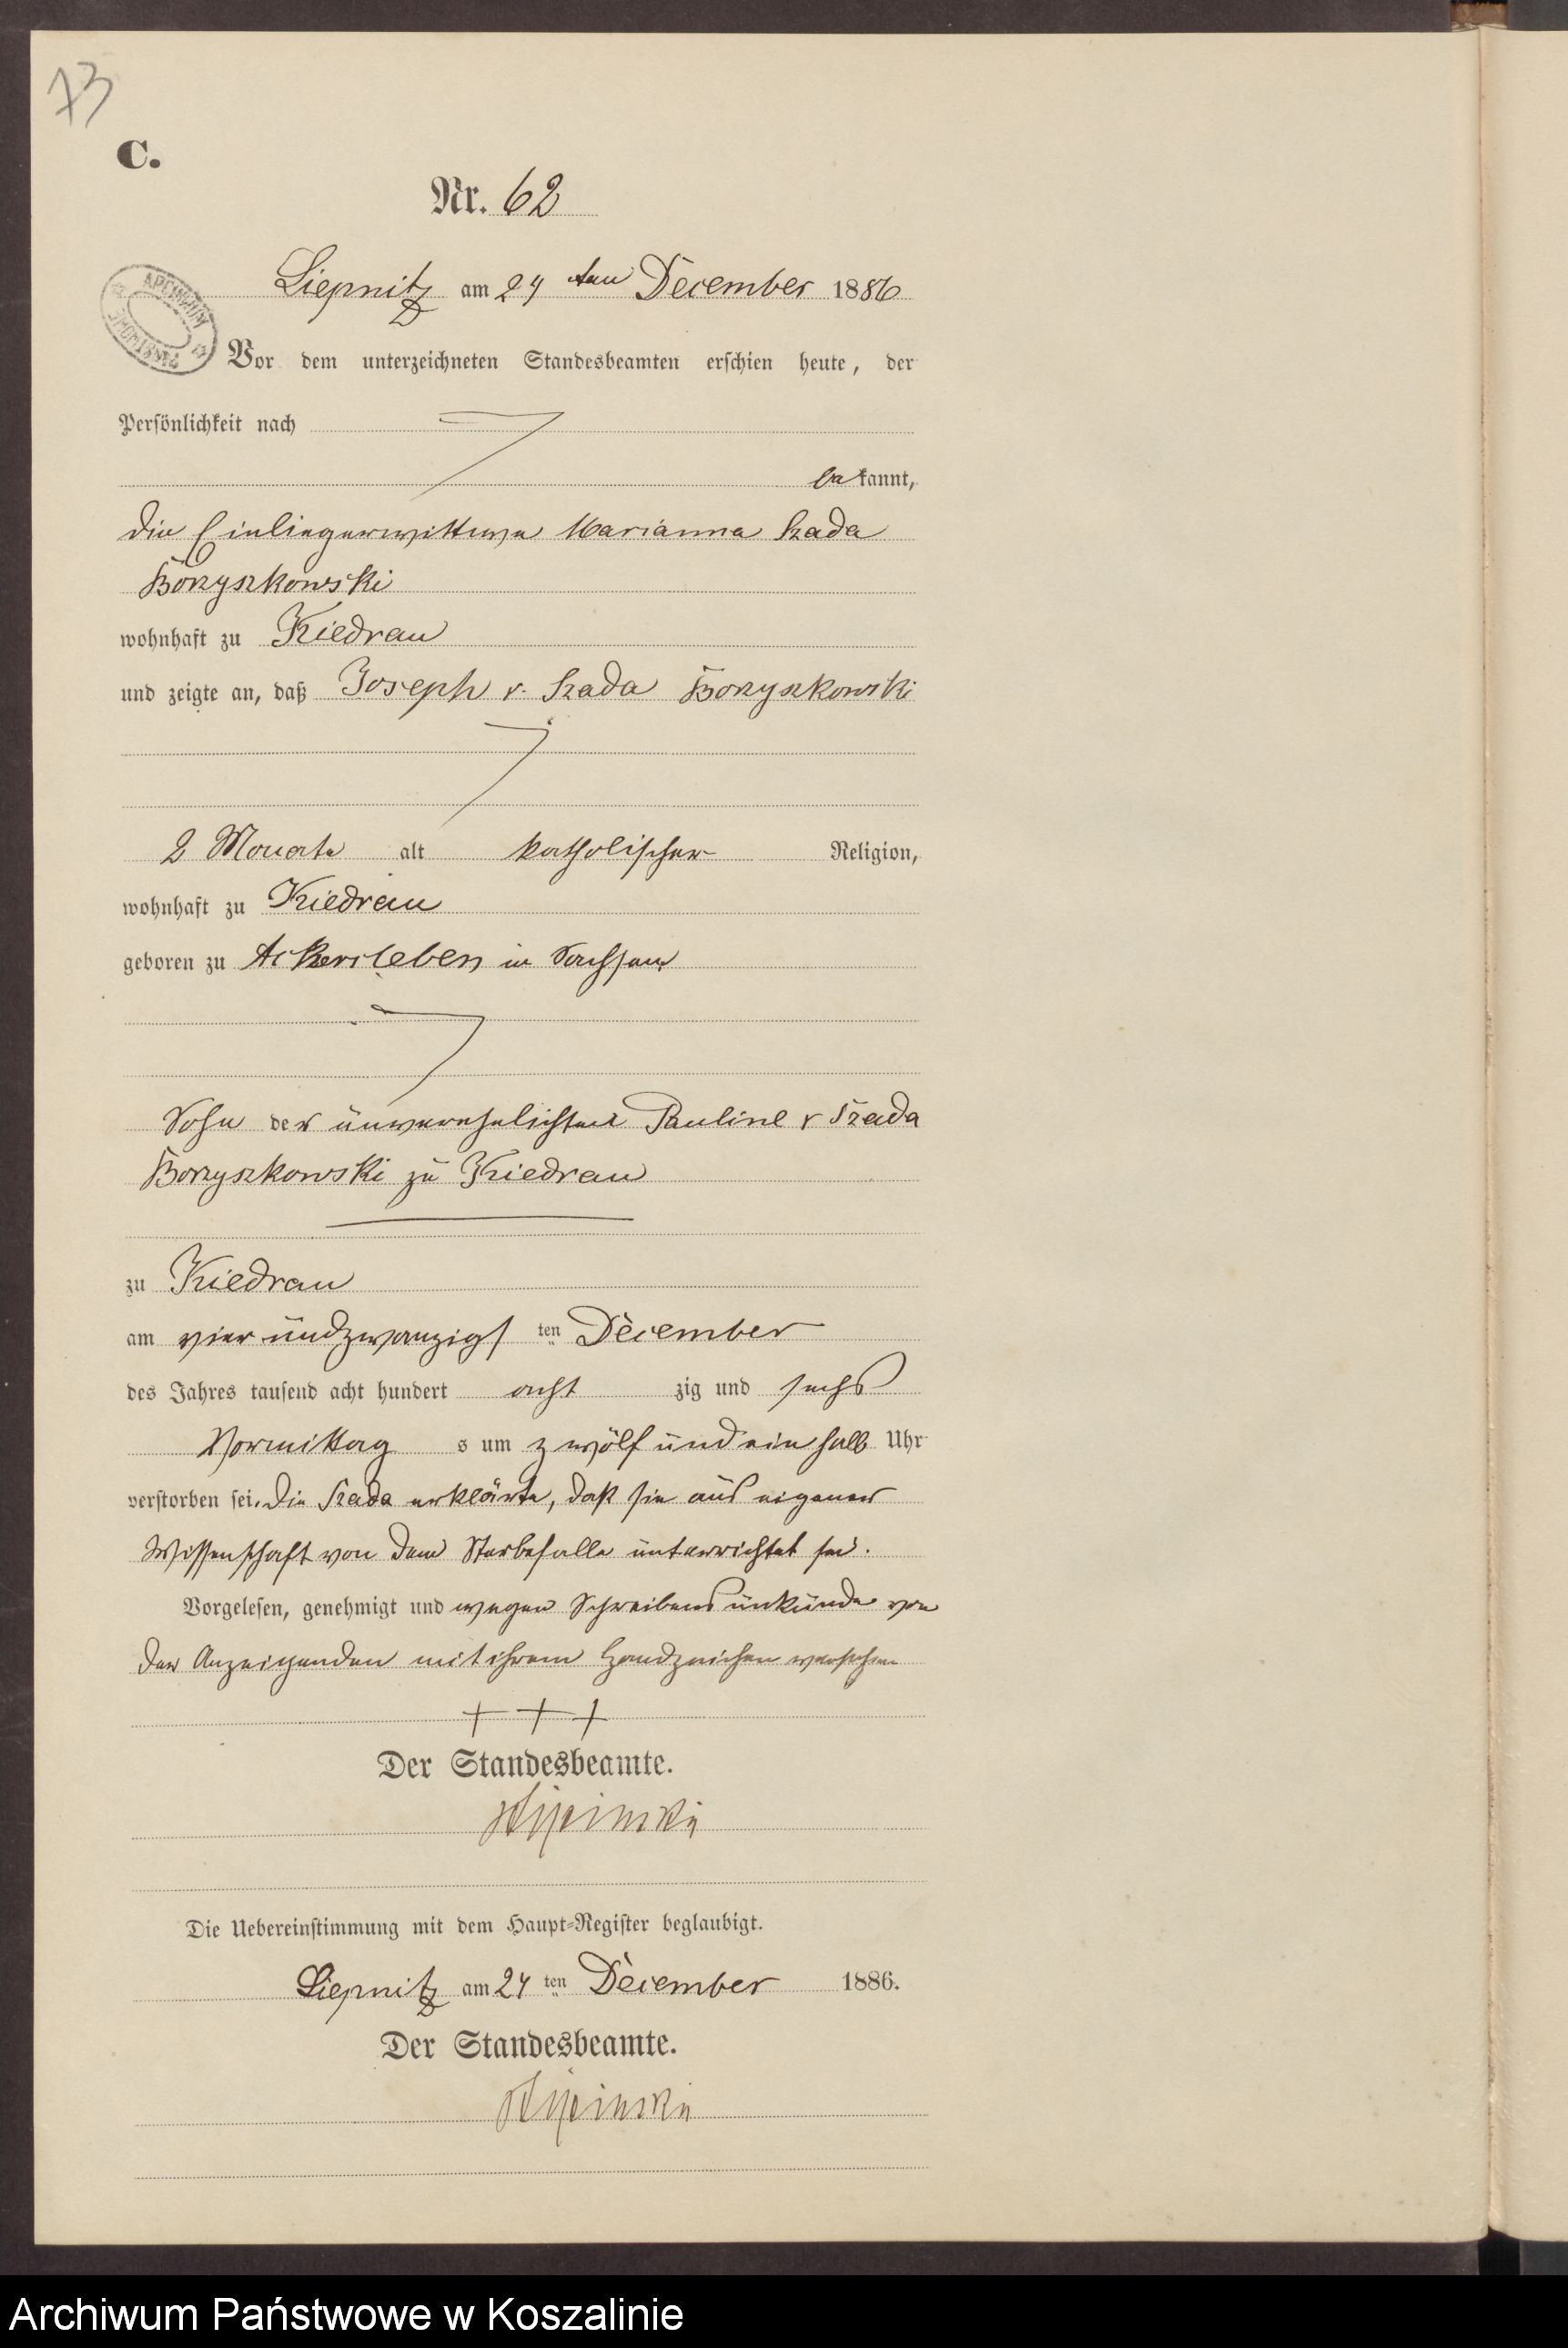 73
C.
Nr. 62
Liepnitz am 24 ten December 1886
ARCHIWUM PAŃSTWOWE
Vor dem unterzeichneten Standesbeamten erschien heute, der
Persönlichkeit nach
bekannt,
die Einliegerwittwe Marianna Szada
Borzyszkowski
wohnhaft zu Kiedrau
und zeigte an, daß Joseph v. Szada Borzyszkowski
2 Monate alt katholischer Religion,
wohnhaft zu Kiedrau
geboren zu in Sachsen
Sohn der unverehelichten Pauline v Szada
Borzyszkowski zu Kiedrau
zu Kiedrau
am vier undzwanzigsten December
des Jahres tausend acht hundert acht zig und sechs
Vormittag s um zwölf und ein halb Uhr
verstorben sei. Die Szada erklärte, daß sie aus eigener
Wissenschaft von dem Sterbefalle unterrichtet sei.
Vorgelesen, genehmigt und wegen Schreibensunkunde von
der Anzeigenden mit ihrem Handzeichen versehen
+ + +
Der Standesbeamte.
Die Uebereinstimmung mit dem Haupt=Register beglaubigt.
Liepnitz am 24 ten December 1886.
Der Standesbeamte.
Archiwum Państwowe w Koszalinie